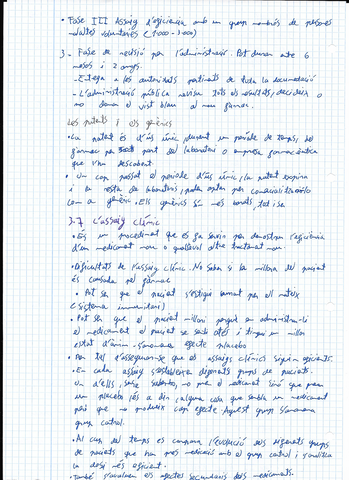 • Fase III Assaig d'eficiència amb un grup nombrós de persones
malaltes voluntaries (1000 - 3000)
3 - Fase de revisió per l'administració. Pot durar entre 6
mesos i 2 anys.
- Entrega a les autoritats pertinents de tota la documentació
- L'administració pública revisa tots els resultats, decideix o
no dona el vist blau al nou fàrmac.
Les patents i els genèrics
• La patent és d'ús únic, durant un període de temps, del
fàrmac per part del laboratori o empresa farmacèutica
que l'ha descobert.
• Un cop passat el període d'ús únic, la patent expira
i la resta de laboratoris, poden optar per comercialitzar-lo
com a genèric. Els genèrics són més barats, tot i
3.7 L'assaig clínic
• És un procediment que es fa servir per demostrar l'eficiència
d'un medicament nou o qualsevol altre tractament nou.
• Dificultats de l'assaig clínic. No saber si la millora del pacient
és causada pel fàrmac
• Pot ser que el pacient s'estigui curant per ell mateix
(sistema immunitari)
• Pot ser que el pacient millori perquè en administrar-li
el medicament el pacient se senti atès i tingui un millor
estat d'ànim. S'anomena efecte placebo
• Per tal d'assegurar-se que els assaigs clínics siguin eficients.
• En cada assaig s'estableixen diferents grups de pacients.
Un d'ells, sense saber-ho, no pren el medicament sinó que pren
un placebo (és a dir, alguna cosa que sembla un medicament
però que no produeix cap efecte. Aquest grup s'anomena
grup control.
• Al cap del temps es compara l'evolució dels diferents grups
de pacients que han pres medicació amb el grup control i s'analitza
la dosi més eficient.
• També s'avaluen els efectes secundaris dels medicaments.